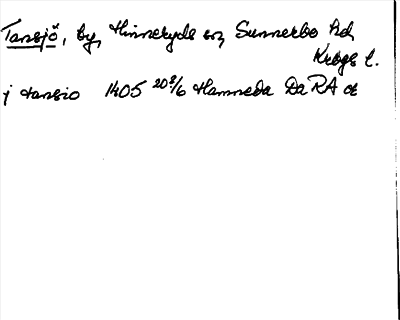 Tansjö, by, Hinneryds sn, Sunnerbo hd,
Krbgs l.
j tansio 1405 20/6 Hamneda DaRA or